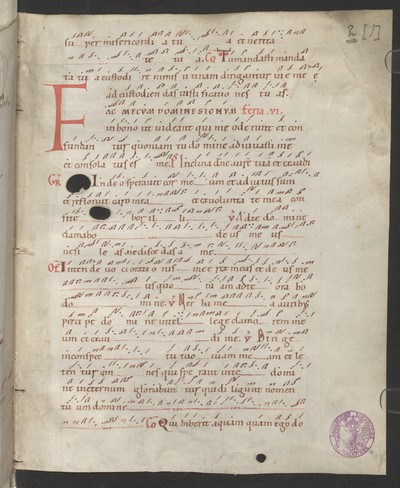 su per misericordi a tu a et verita
te tu a. Co Tu mandasti manda
ta tu a custodi re nimis utinam dirigantur vi e me e
ad custodiendas iustificatio nes tu as.
FAC MECUM DOMINE SIGNUM feria .VI.
in bono ut videant qui me oderunt et con
fundan tur quoniam tu domine adiuvasti me
et consola tus es me Ps Inclina dne aurē tuā et exaudi
GR In deo speravit cor me um et adiutus sum
et refloruit caro mea et ex voluntate mea con
fite bor il li V Ad te do mine
clamabo de us me us
ne si le as ne discedas a me
OF Intende voci orationis me e rex meus et de us me
us quo ni am ad te ora bo
do mi ne V Ver ba me a auribus
percipe do mi ne intel lege clamo rem me
um et exau di me. V Dirige
in conspec tu tuo viam me am et le
ten tur om nes qui sperant in te domi
ne in eternum gloriabun tur qui diligunt nomen
tu um domine
Co Qui biberit aquam quam ego do
2 [1]